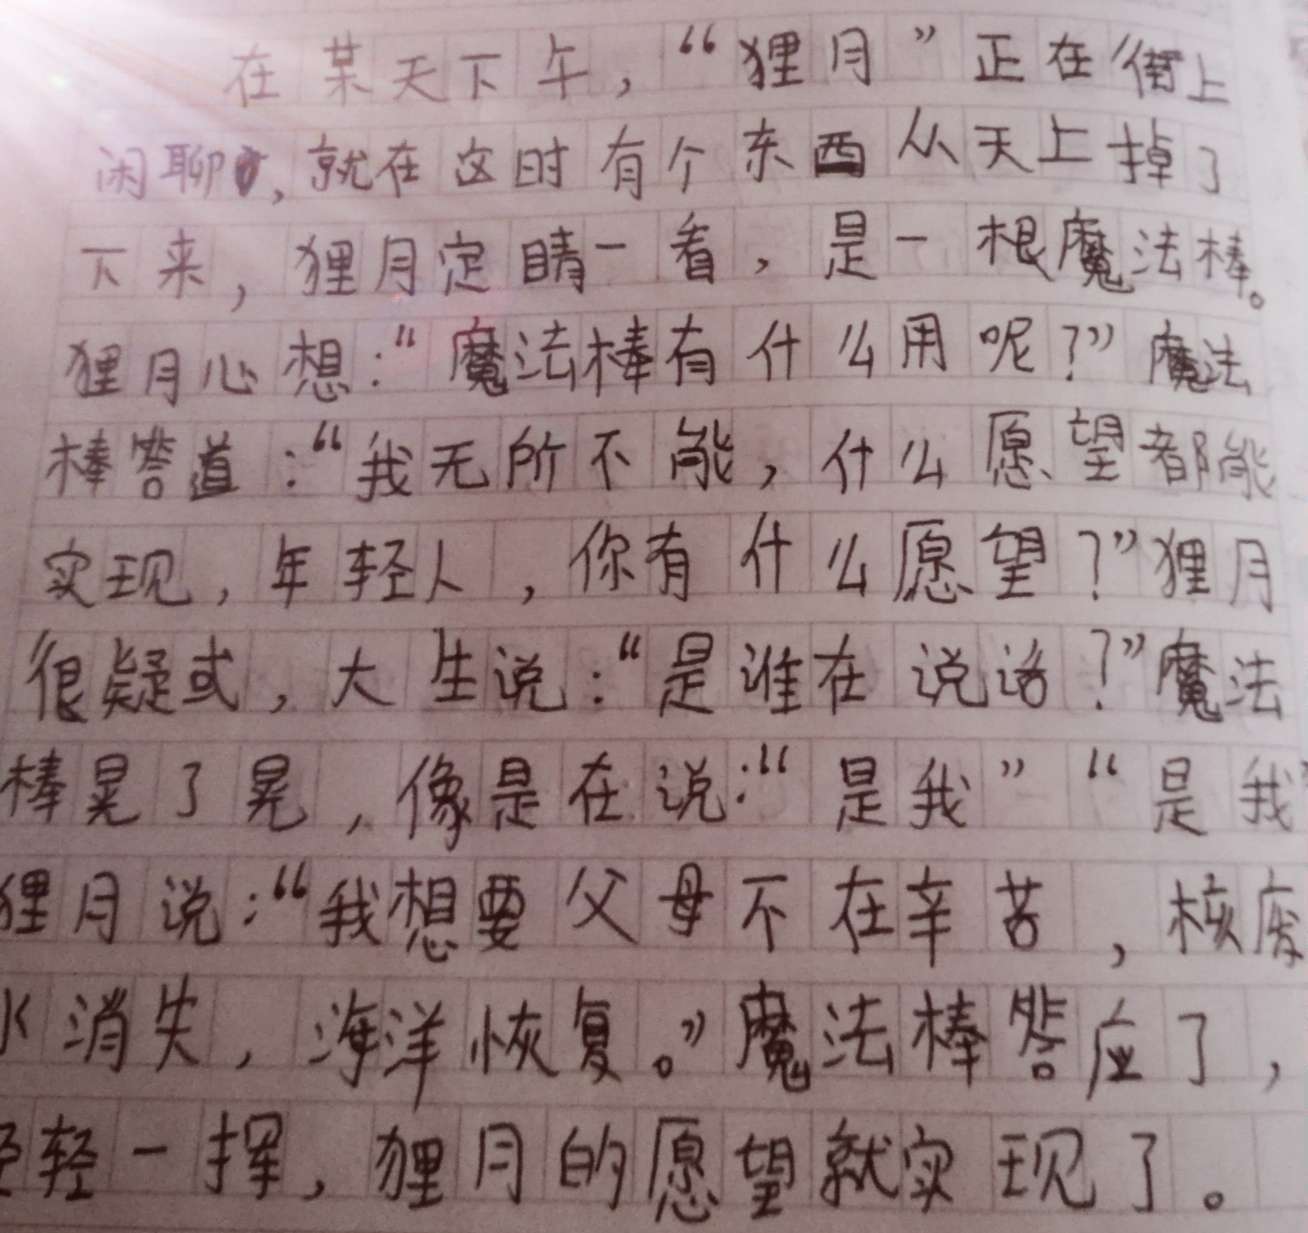 在某天下午，“狸月”正在街上
闲聊，就在这时有个东西从天上掉了
下来，狸月定睛一看，是一根魔法棒。
狸月心想：“魔法棒有什么用呢？”魔法
棒答道：“我无所不能，什么愿望都能
实现，年轻人，你有什么愿望？”狸月
很疑或，大生说：“是谁在说话？”魔法
棒晃了晃，像是在说：“是我”“是我”
狸月说：“我想要父母不在辛苦，核废
水消失，海洋恢复。”魔法棒答应了，
轻轻一挥，狸月的愿望就实现了。